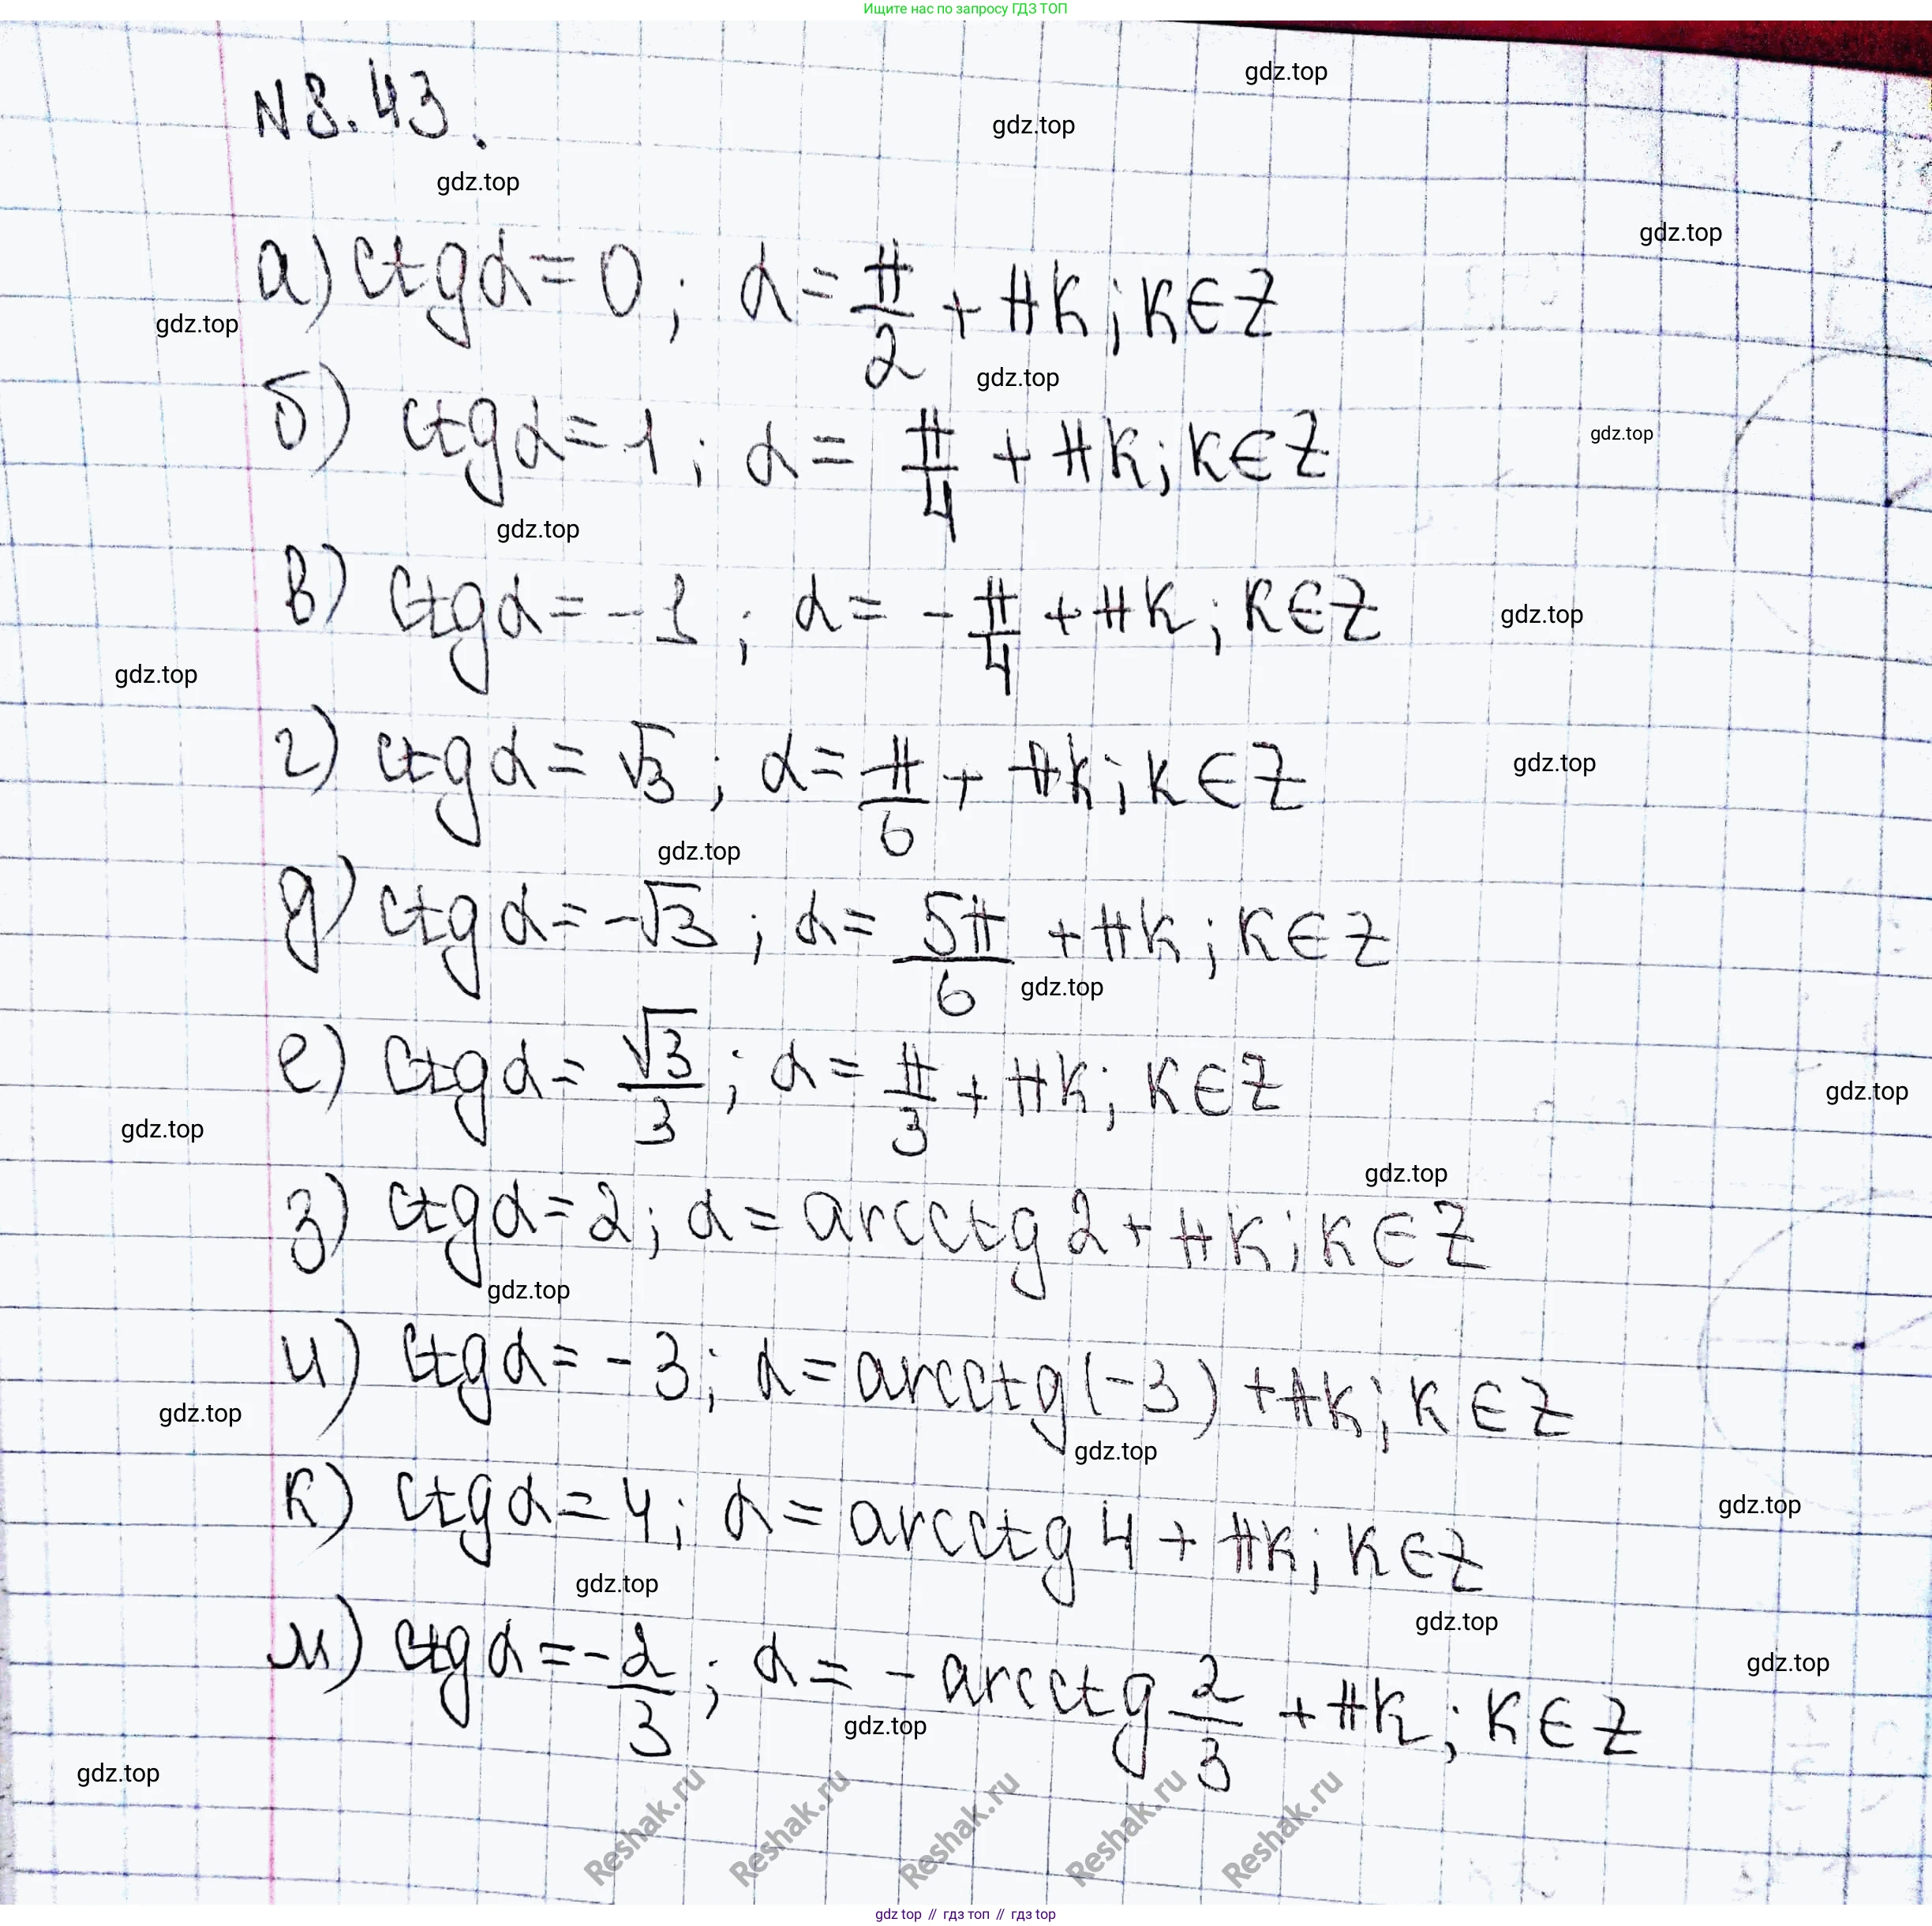 Ищите нас по запросу ГДЗ ТОП
N 8.43.
gdz.top
gdz.top
gdz.top
gdz.top
а) ctgα = 0; α = π/2 + πk; k∈Z
gdz.top
gdz.top
б) ctgα = 1; α = π/4 + πk; k∈Z
gdz.top
gdz.top
в) ctgα = -1; α = -π/4 + πk; k∈Z
gdz.top
gdz.top
г) ctgα = √3; α = π/6 + πk; k∈Z
gdz.top
gdz.top
д) ctgα = -√3; α = 5π/6 + πk; k∈Z
gdz.top
е) ctgα = √3/3; α = π/3 + πk; k∈Z
gdz.top
gdz.top
gdz.top
з) ctgα = 2; α = arcctg 2 + πk; k∈Z
gdz.top
и) ctgα = -3; α = arcctg(-3) + πk; k∈Z
gdz.top
gdz.top
к) ctgα = 4; α = arcctg 4 + πk; k∈Z
gdz.top
gdz.top
gdz.top
м) ctgα = -2/3; α = -arcctg 2/3 + πk; k∈Z
gdz.top
gdz.top
gdz.top
Reshak.ru Reshak.ru Reshak.ru Reshak.ru Reshak.ru
gdz top // гдз топ // гдз top